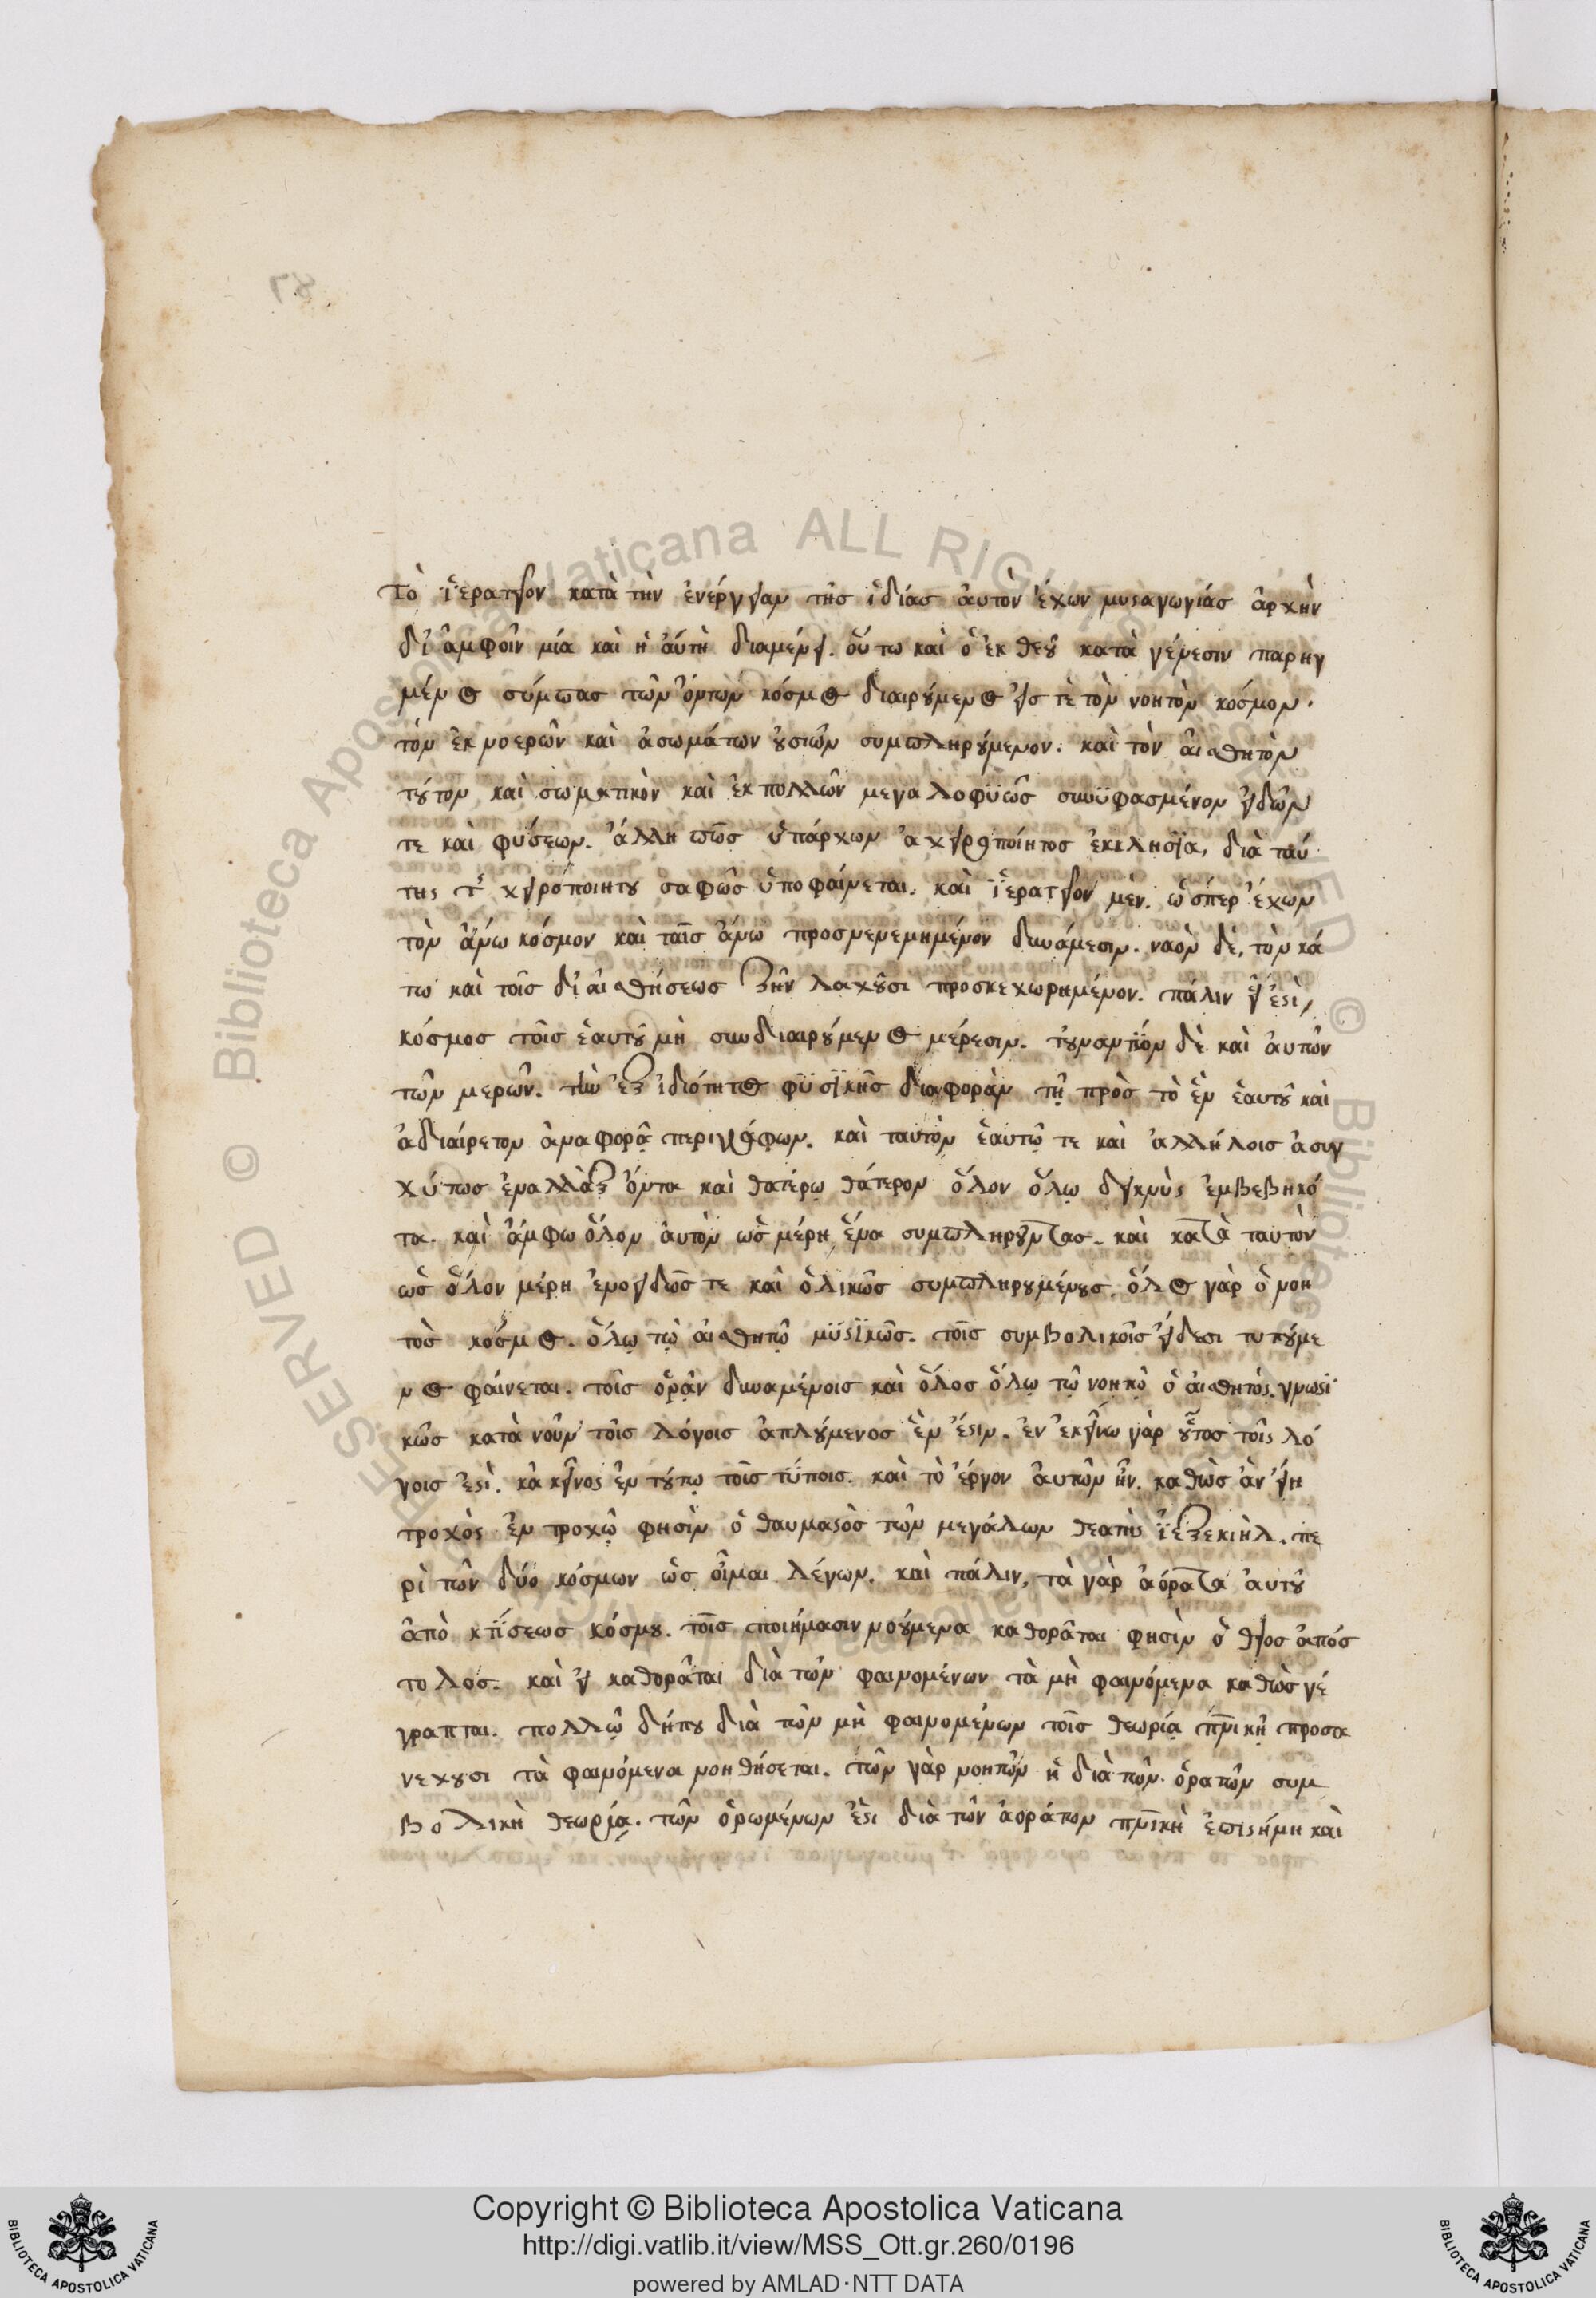 Τὸ ἱερατεῖον κατὰ τὴν ἐνέργειαν τῆς ἰδίας ἀυτὸν ἔχων μυσταγωγίας ἀρχὴν
δι ἀμφοῖν μία καὶ ἡ ἀυτὴ διαμένει. οὕτω καὶ ὁ ἐκ θεοῦ κατὰ γένεσιν παρηγ
μένος σύμπας τῶν ὄντων κόσμος διαιρούμενος εἴς τὲ τὸν νοητὸν κόσμον.
τὸν ἐκ νοερῶν καὶ ἀσωμάτων οὐσιῶν συμπληρούμενον. καὶ τὸν ἀισθητὸν
τοῦτον καὶ σωματικὸν καὶ ἐκ πολλῶν μεγαλοφϋῶς συνϋφασμένον εἰδῶν
τε καὶ φύσεων. ἄλλη πῶς ὑπάρχων ἀχειροποίητος ἐκκλησΐα, διὰ ταύ
της τῆς χειροποιήτου σαφῶς ὑποφαίνεται. καὶ ἱερατεῖον μὲν. ὥσπερ ἔχων
τὸν ἄνω κόσμον καὶ ταῖς ἄνω προσνενεμημένον δυνάμεσιν. ναὸν δὲ, τὸν κά
τω καὶ τοῖς δι ἀισθήσεως ζῆν λαχοῦσι προσκεχωρημένον. πάλιν εἷ ἐστὶ,
κόσμος τοῖς ἑαυτοῦ μὴ συνδιαιρούμενος μέρεσιν. τοὐναντΐον δὲ καὶ ἀυτῶν
τῶν μερῶν. τὴν ἐξ ἰδιότητος φϋσΐκῆς διαφορὰν τῇ πρὸς τὸ ἓν ἑαυτοῦ καὶ
ἀδιαίρετον ἀναφορᾷ περιγράφων. καὶ ταυτὸν ἑαυτῷ τε καὶ ἀλλήλοις ἀσυγ
χύτως ἐναλλὰξ ὄντα καὶ θατέρῳ θάτερον ὅλον ὅλῳ δεικνὺς ἐμβεβηκό
τα. καὶ ἄμφω ὅλον ἀυτὸν ὡς μέρη ἕνα συμπληροῦντας. καὶ κατὰ ταυτὸν
ὡς ὅλον μέρη ἐνοειδῶς τε καὶ ὁλικῶς συμπληρουμένους. ὅλος γὰρ ὁ νοη
τὸς κόσμος. ὅλῳ τῷ ἀισθητῷ μϋστΐκῶς. τοῖς συμβολικοῖς εἴδεσι τυπούμε
νος φαίνεται. τοῖς ὁρᾷν δυναμένοις καὶ ὅλος ὅλῳ τῷ νοητῷ ὁ ἀισθητός. γνωστΐ
κῶς κατὰ νοῦν τοῖς λόγοις ἁπλούμενος ἓν ἔστιν. ἐν ἐκείνω γὰρ οὗτος τοῖς λό
γοις ἐστὶ. κἀκεῖνος ἐν τούτῳ τοῖς τΰποις. καὶ τὸ ἔργον ἀυτῶν ἦν. καθὼς ἂν εἴη
τροχὸς ἐν τροχῷ φησὶν ὁ θαυμαστὸς τῶν μεγάλων θεατὴς ἰεζεκιὴλ. πε
ρὶ τῶν δύο κόσμων ὡς οἶμαι λέγων. καὶ πάλιν, τὰ γὰρ ἀόρατα ἀυτοῦ
ἀπὸ κτΐσεως κόσμου. τοῖς ποιήμασιν νοούμενα καθορᾶται φησὶν ὁ θεῖος ἀπόσ
τολος. καὶ εἰ καθορᾶται διὰ τῶν φαινομένων τὰ μὴ φαινόμενα καθὼς γέ
γραπται. πολλῷ δήπου διὰ τῶν μὴ φαινομένων τοῖς θεωρίᾳ πνικῇ προσα
νεχουσι τὰ φαινόμενα νοηθήσεται. τῶν γὰρ νοητῶν ἡ διὰ τῶν ὁρατῶν συμ
βολικὴ θεωρία. τῶν ὁρωμένων ἐστι διὰ τῶν ἀοράτων πνικὴ ἐπιστήμη καὶ
Copyright © Biblioteca Apostolica Vaticana
http://digi.vatlib.it/view/MSS_Ott.gr.260/0196
powered by AMLAD·NTT DATA